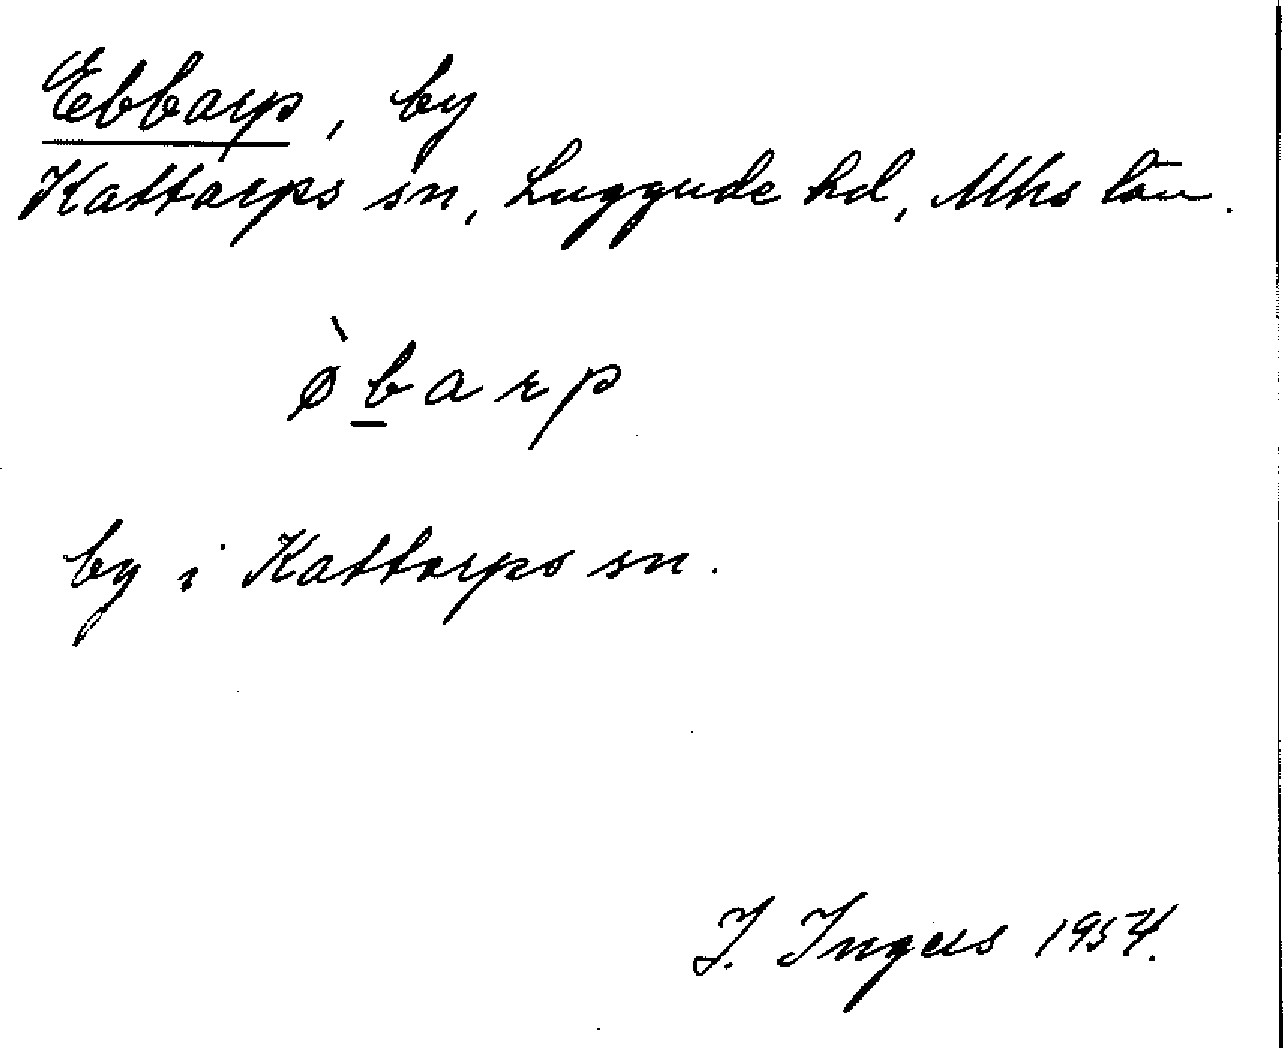 Ebbarp, by
Kattarps sn, Luggude hd, Mhs län.
ø̀b̲arp
by i Kattarps sn.
I. Ingers 1954.